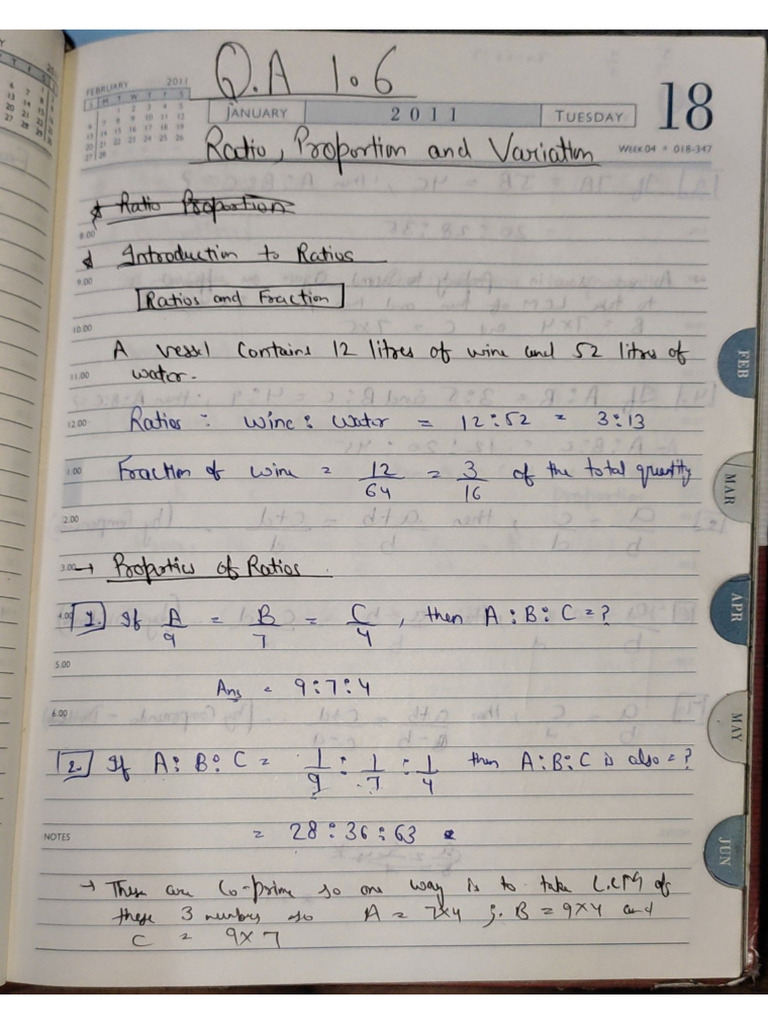 Q.A 1.6
FEBRUARY 2011
JANUARY 2011 TUESDAY 18
WEEK 04 • 018-347
Ratio, Proportion and Variation
Ratio Proportion
8.00
Introduction to Ratios
9.00
Ratios and Fraction
10.00
A vessl contains 12 litres of wine and 52 litres of
11.00 water.
12.00 Ratios : wine : water = 12:52 = 3:13
1.00 Fraction of wine = 12/64 = 3/16 of the total quantity
2.00
3.00 → Properties of Ratios
4.00 1. If A/9 = B/7 = C/4, then A:B:C=?
5.00
Ans = 9:7:4
6.00
2. If A:B:C = 1/9 : 1/7 : 1/4 then A:B:C is also = ?
NOTES = 28:36:63
→ These are Co-prime so one way is to take L.C.M of
these 3 numbers so A = 7x4 ; B = 9x4 and
C = 9x7
FEB
MAR
APR
MAY
JUN